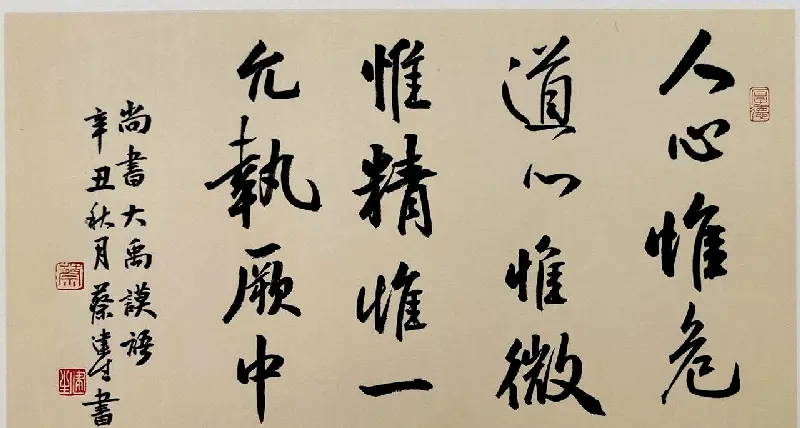 人心惟危
道心惟微
惟精惟一
允執厥中
尚書大禹謨語
辛丑秋月蔡建生書